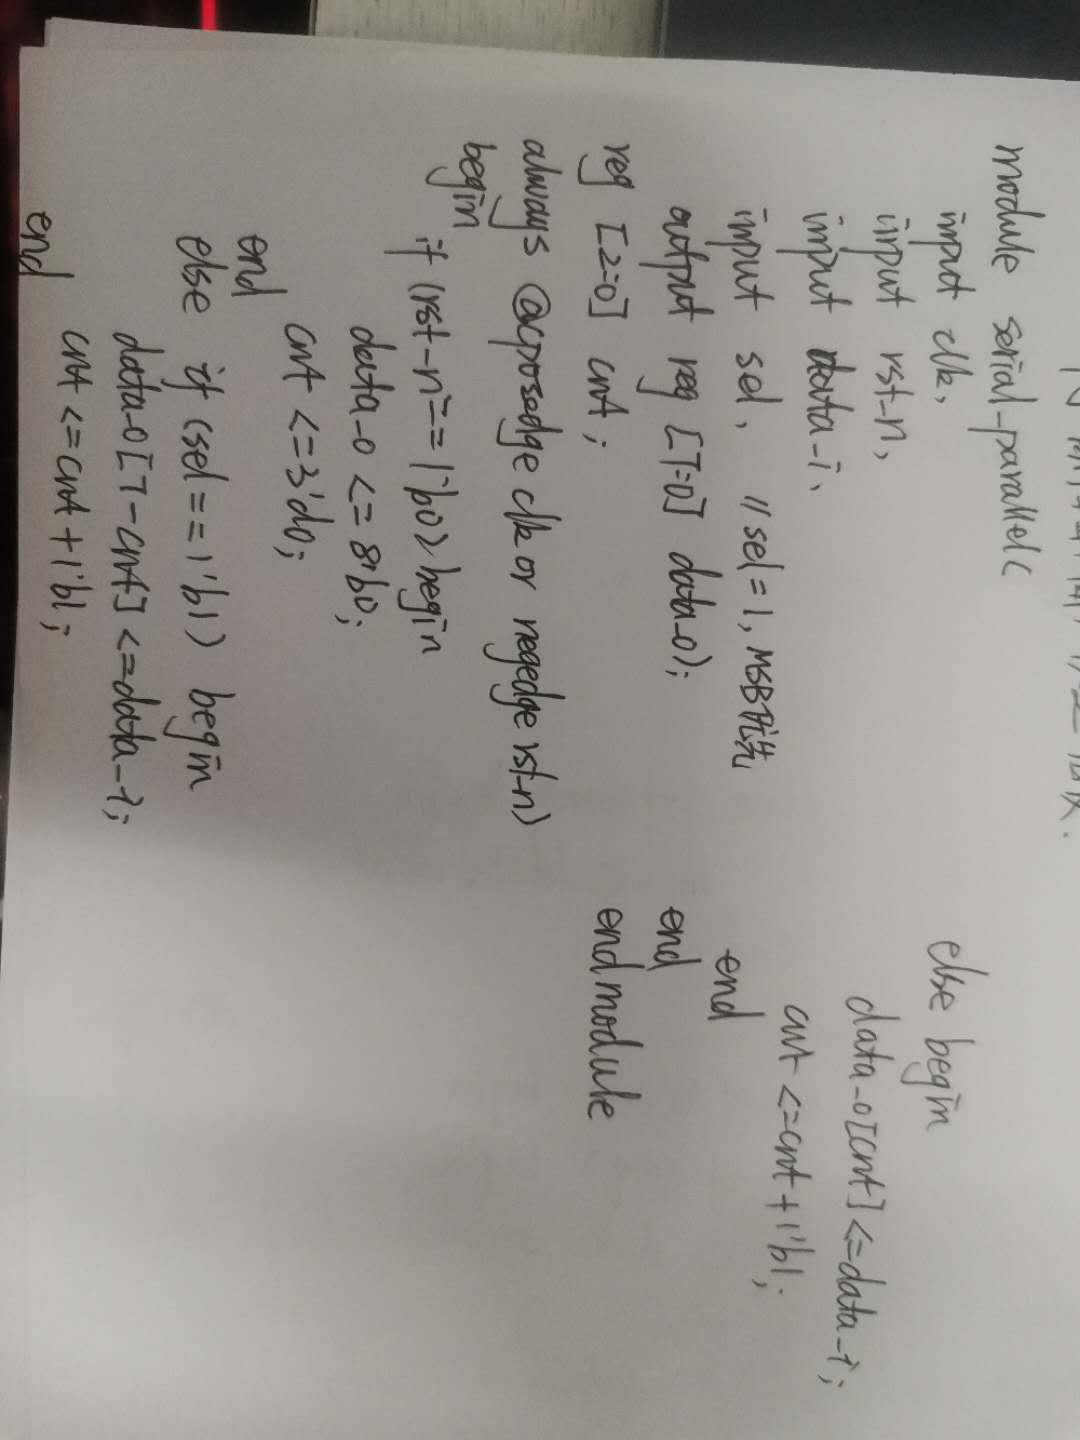 module serial_parallel(
input clk,
input rst_n,
input data_i,
input sel, //sel=1, MSB优先
output reg [7:0] data_o);
reg [2:0] cnt;
always @(posedge clk or negedge rst_n)
begin
if (rst_n==1'b0) begin
data_o <= 8'b0;
cnt <= 3'd0;
end
else if (sel==1'b1) begin
data_o[7-cnt] <= data_i;
cnt <= cnt + 1'b1;
end
else begin
data_o[cnt] <= data_i;
cnt <= cnt + 1'b1;
end
end
endmodule